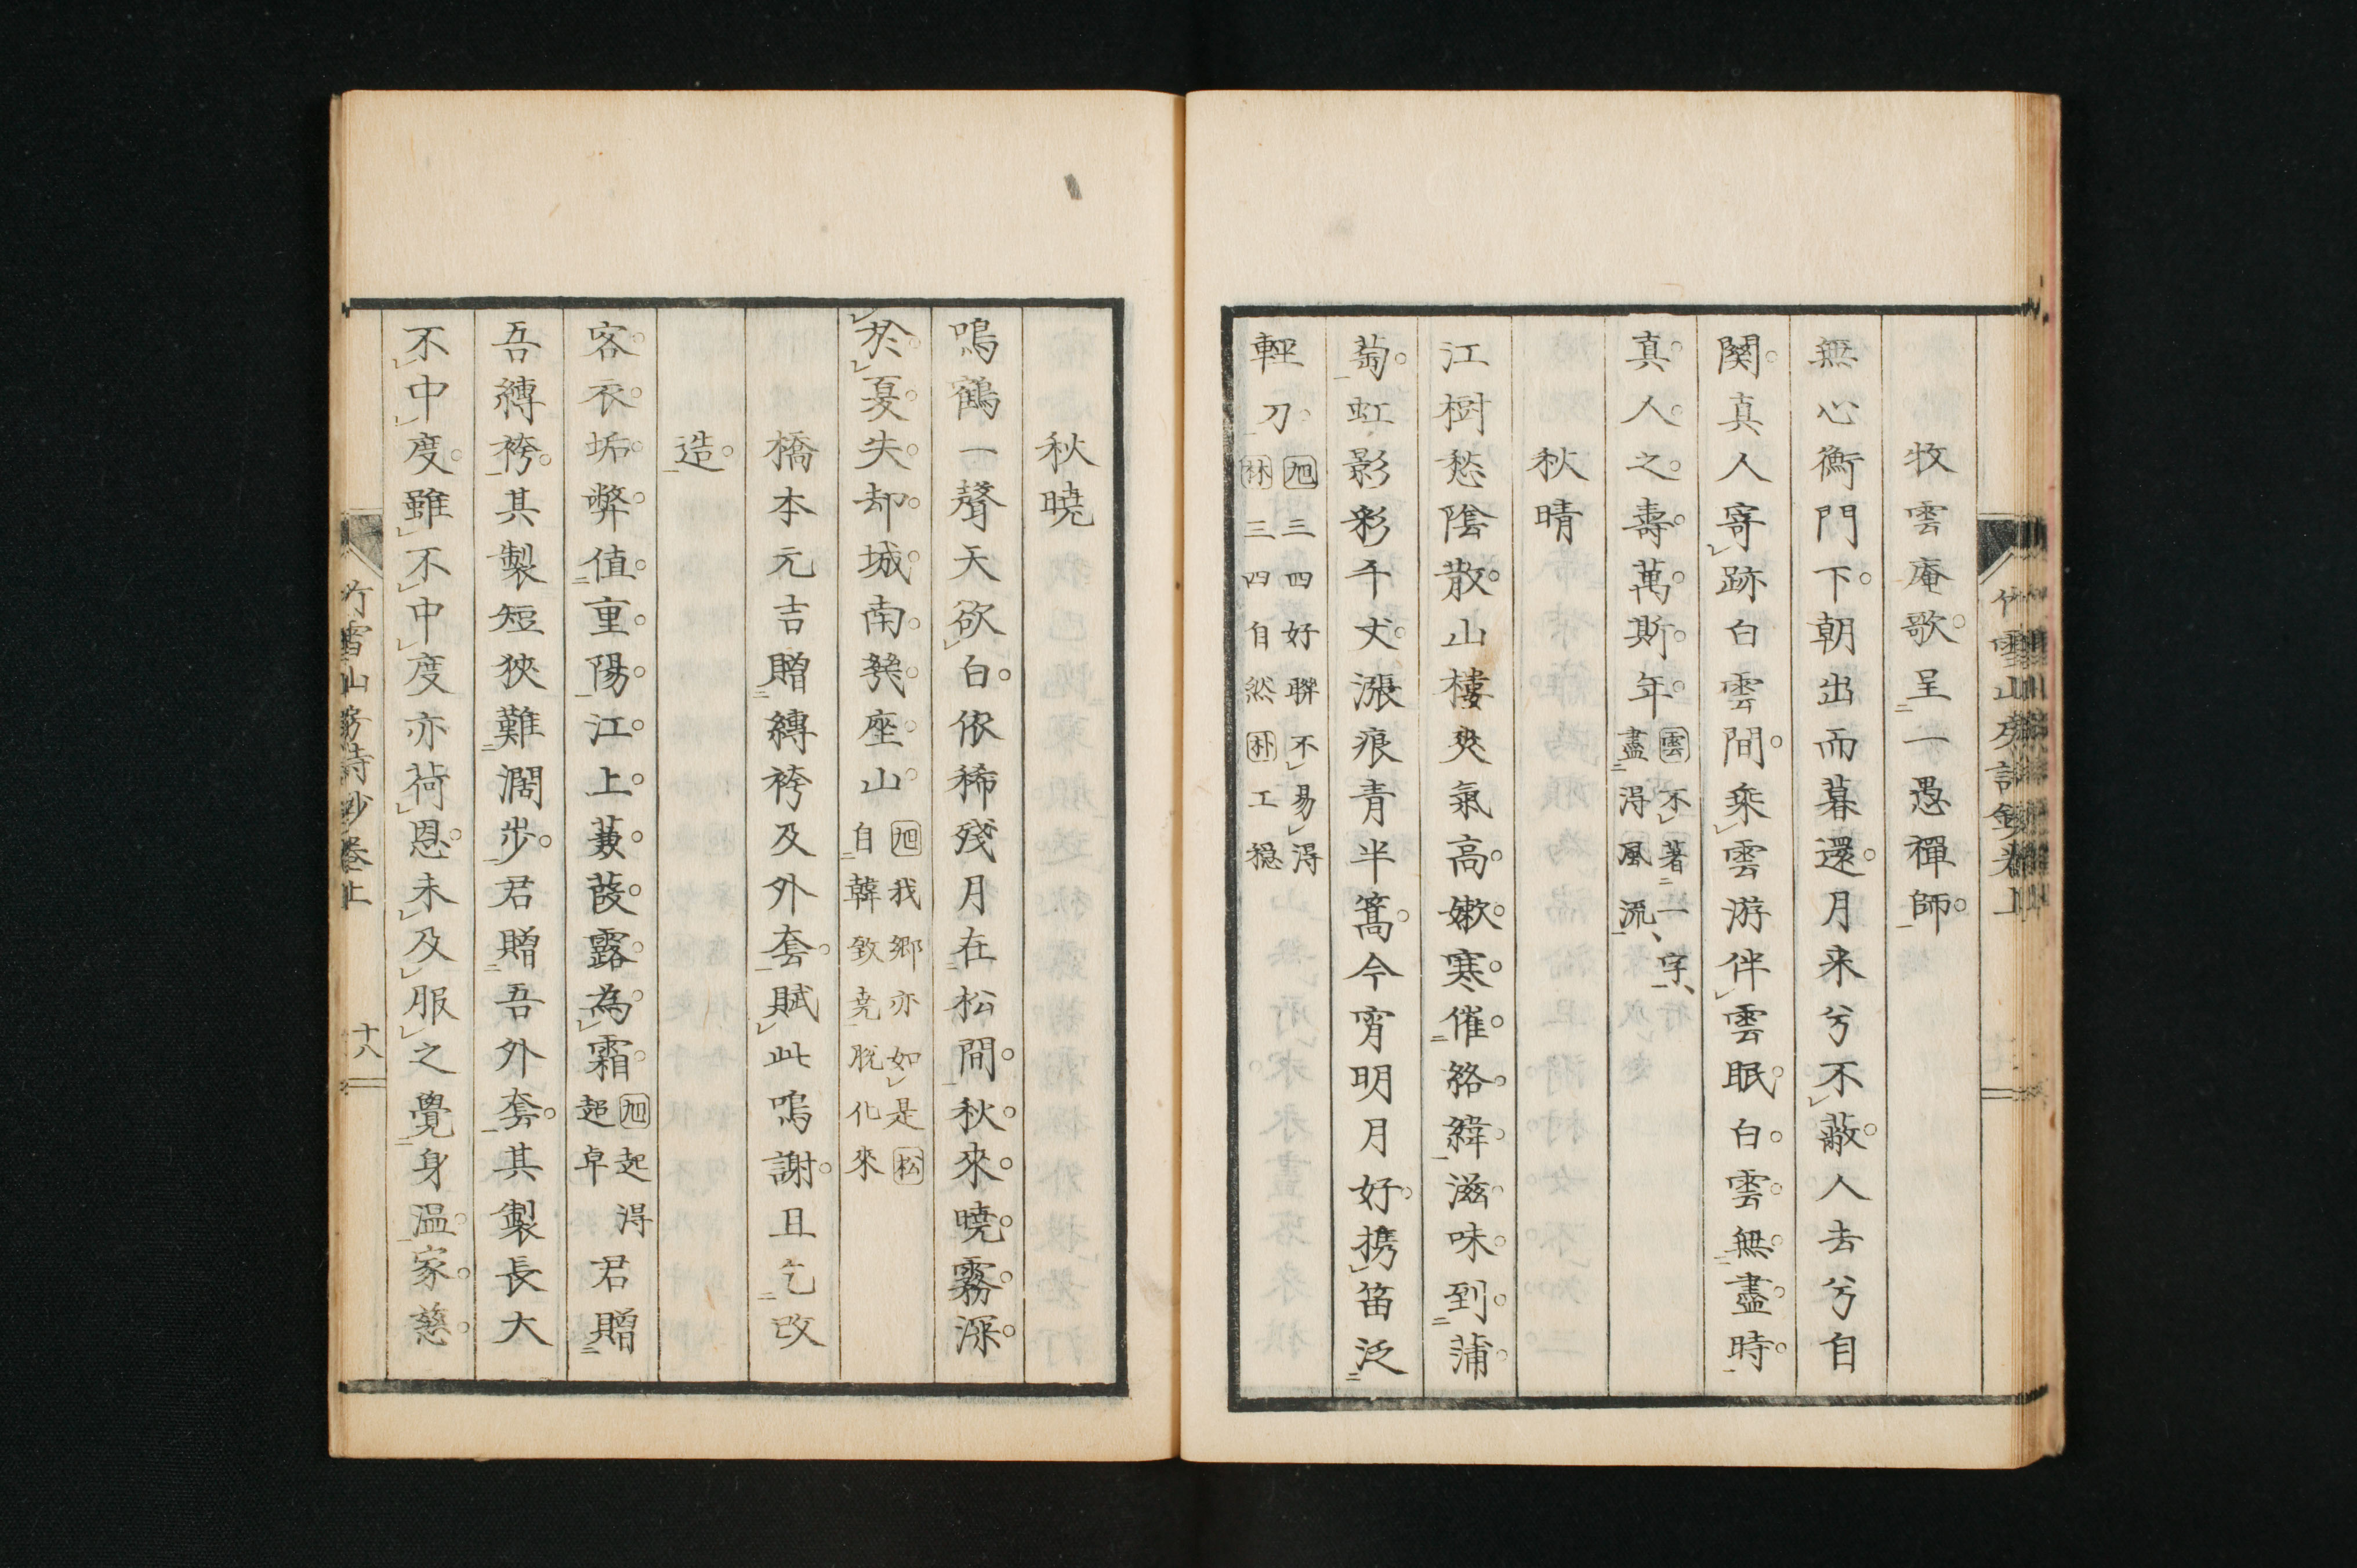 牧雲庵歌。呈一愚禪師。
無心衡門下。朝出而暮還。月来兮不蔽。人去兮自
関。真人寄跡白雲間。乘雲游伴雲眠。白雲無盡時。
真人之壽萬斯年。雲不著一字、
盡得風流
秋晴
江樹愁陰散。山樓爽氣高。嫩寒催絡緯。滋味到蒲
萄。虹影彩千丈。漲痕青半篙。今宵明月好。携笛泛
輕刀。旭三四好聯不易得
林三四自然朴工穏
竹雪山房詩鈔卷上
秋曉
鳴鶴一聲天欲白。依稀殘月在松間。秋來曉霧深
於夏。失却城南幾座山。旭我郷亦如是松
自韓致尭脱化來
橋本元吉贈縛袴及外套。賦此鳴謝。且乞改
造。
客衣垢弊値重陽。江上蒹葭露為霜。旭起得
超卓
君贈
吾縛袴。其製短狹難濶步。君贈吾外套。其製長大
不中度。雖不中度亦荷恩。未及服之覺身温。家慈
竹雪山房詩鈔卷上
十八